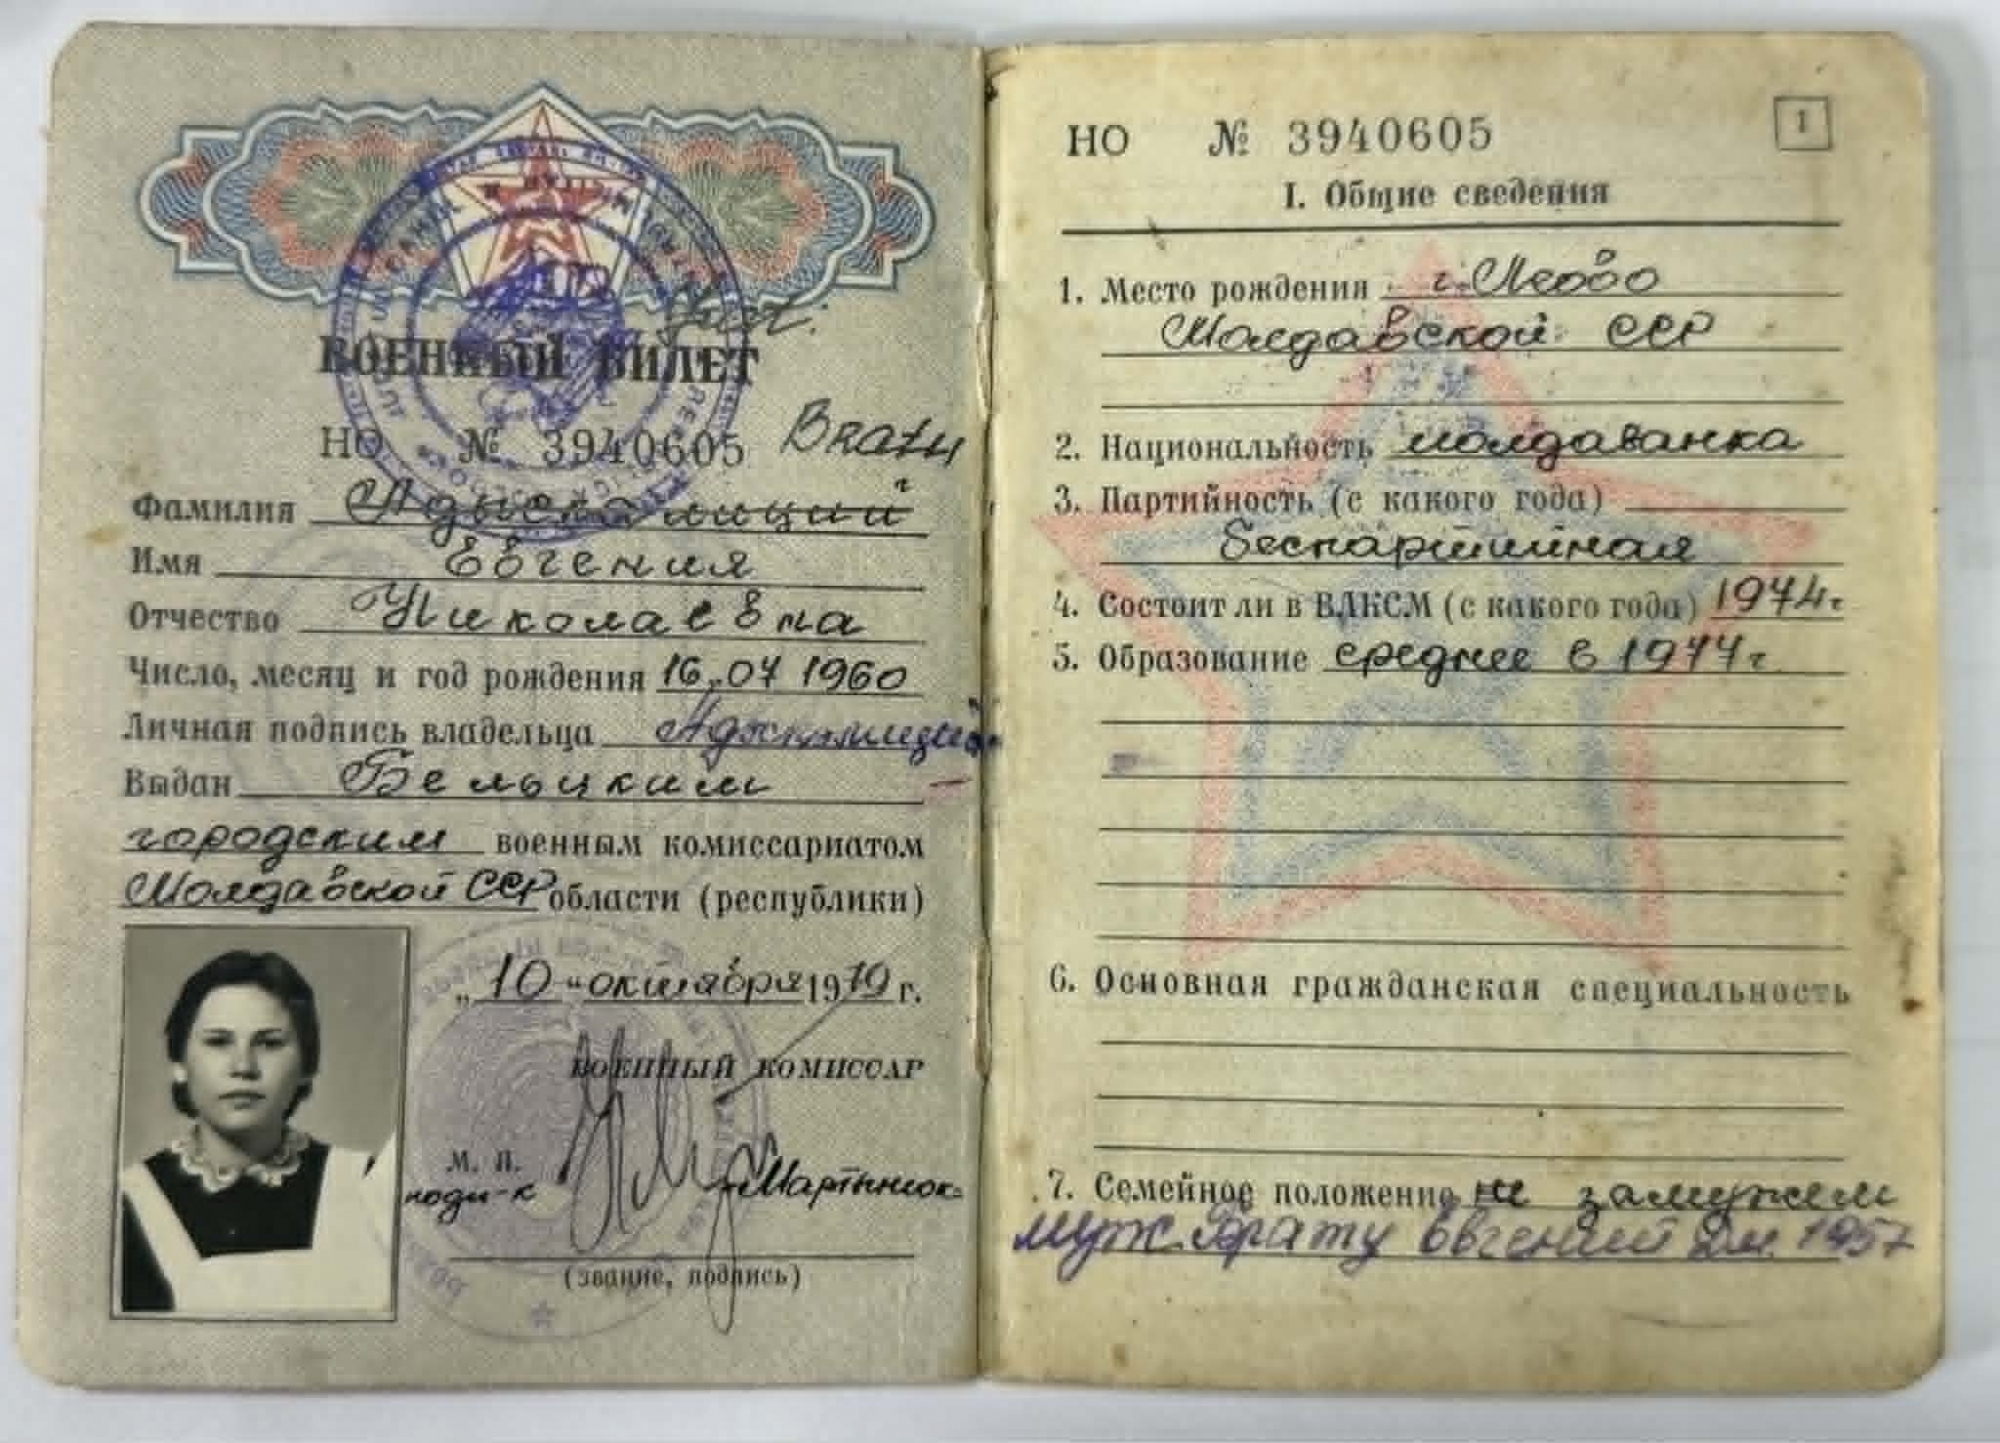 ВОЕННЫЙ БИЛЕТ
НО № 3940605 Brațu
Фамилия Адыскалиций
Имя Евгения
Отчество Николаевна
Число, месяц и год рождения 16.07 1960
Личная подпись владельца
Выдан Бельцким
городским военным комиссариатом
Молдавской ССР области (республики)
„10“ октября 1979 г.
ВОЕННЫЙ КОМИССАР
М. П.
подп-к Мартынюк
(звание, подпись)
НО № 3940605
1
I. Общие сведения
1. Место рождения г. Леово
Молдавской ССР
2. Национальность молдаванка
3. Партийность (с какого года)
беспартийная
4. Состоит ли в ВЛКСМ (с какого года) 1974г
5. Образование среднее в 1977г
6. Основная гражданская специальность
7. Семейное положение не замужем
муж Брату Евгений Дм. 1957